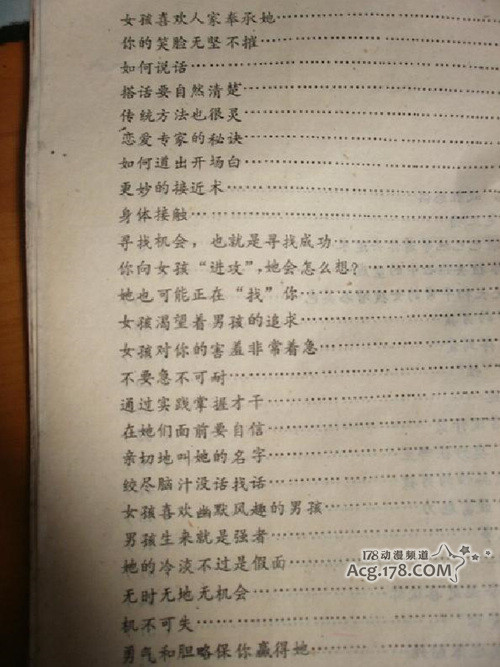 女孩喜欢人家奉承她……………………
你的笑脸无坚不摧……………………
如何说话……………………
搭话要自然清楚……………………
传统方法也很灵……………………
恋爱专家的秘诀……………………
如何道出开场白……………………
更妙的接近术……………………
身体接触……………………
寻找机会，也就是寻找成功……………………
你向女孩“进攻”，她会怎么想？……………………
她也可能正在“找”你……………………
女孩渴望着男孩的追求……………………
女孩对你的害羞非常着急……………………
不要急不可耐……………………
通过实践掌握才干……………………
在她们面前要自信……………………
亲切地叫她的名字……………………
绞尽脑汁没话找话……………………
女孩喜欢幽默风趣的男孩……………………
男孩生来就是强者……………………
她的冷淡不过是假面……………………
无时无地无机会……………………
机不可失……………………
勇气和胆略保你赢得她……………………
178动漫频道
Acg.178.com